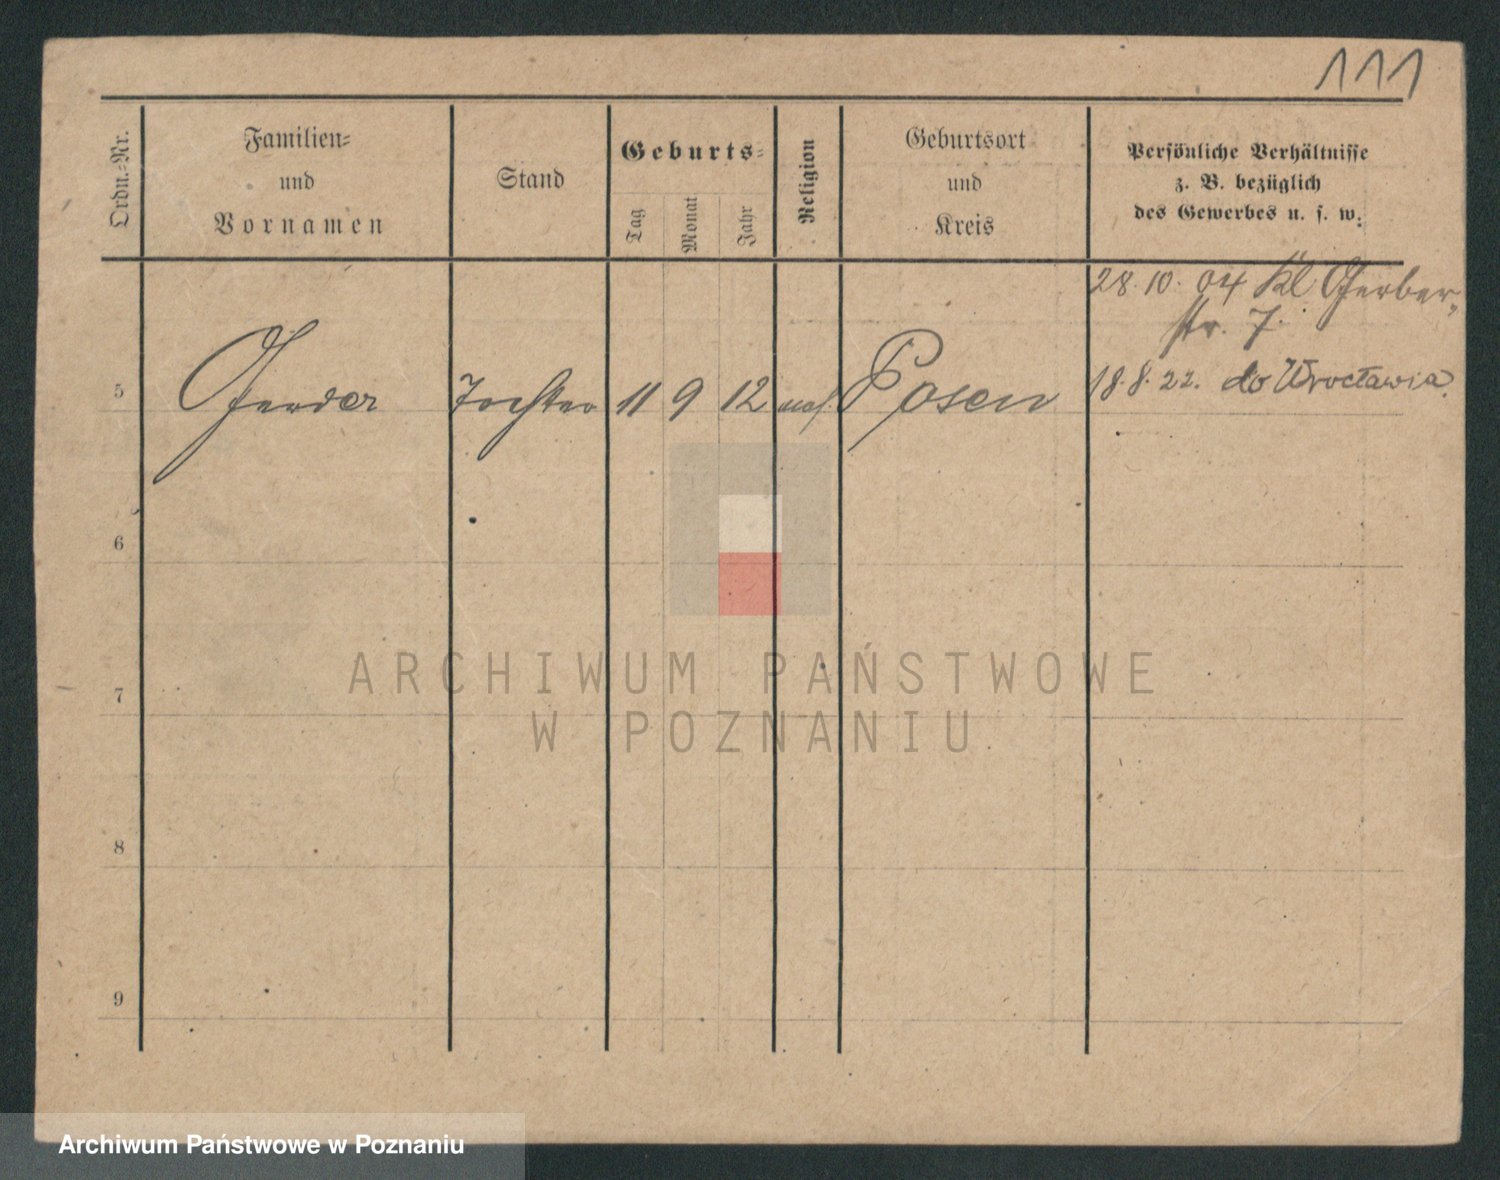 111
Ordn.-Nr.
Familien-
und
Vornamen
Stand
Geburts-
Tag
Monat
Jahr
Religion
Geburtsort
und
Kreis
Persönliche Verhältnisse
z. B. bezüglich
des Gewerbes u. s. w.
28.10.04 Kl Gerber-
str. 7.
5 Tochter 11 9 12 Posen 18.8.22. do Wrocławia.
6
7
8
9
ARCHIWUM PAŃSTWOWE
W POZNANIU
Archiwum Państwowe w Poznaniu